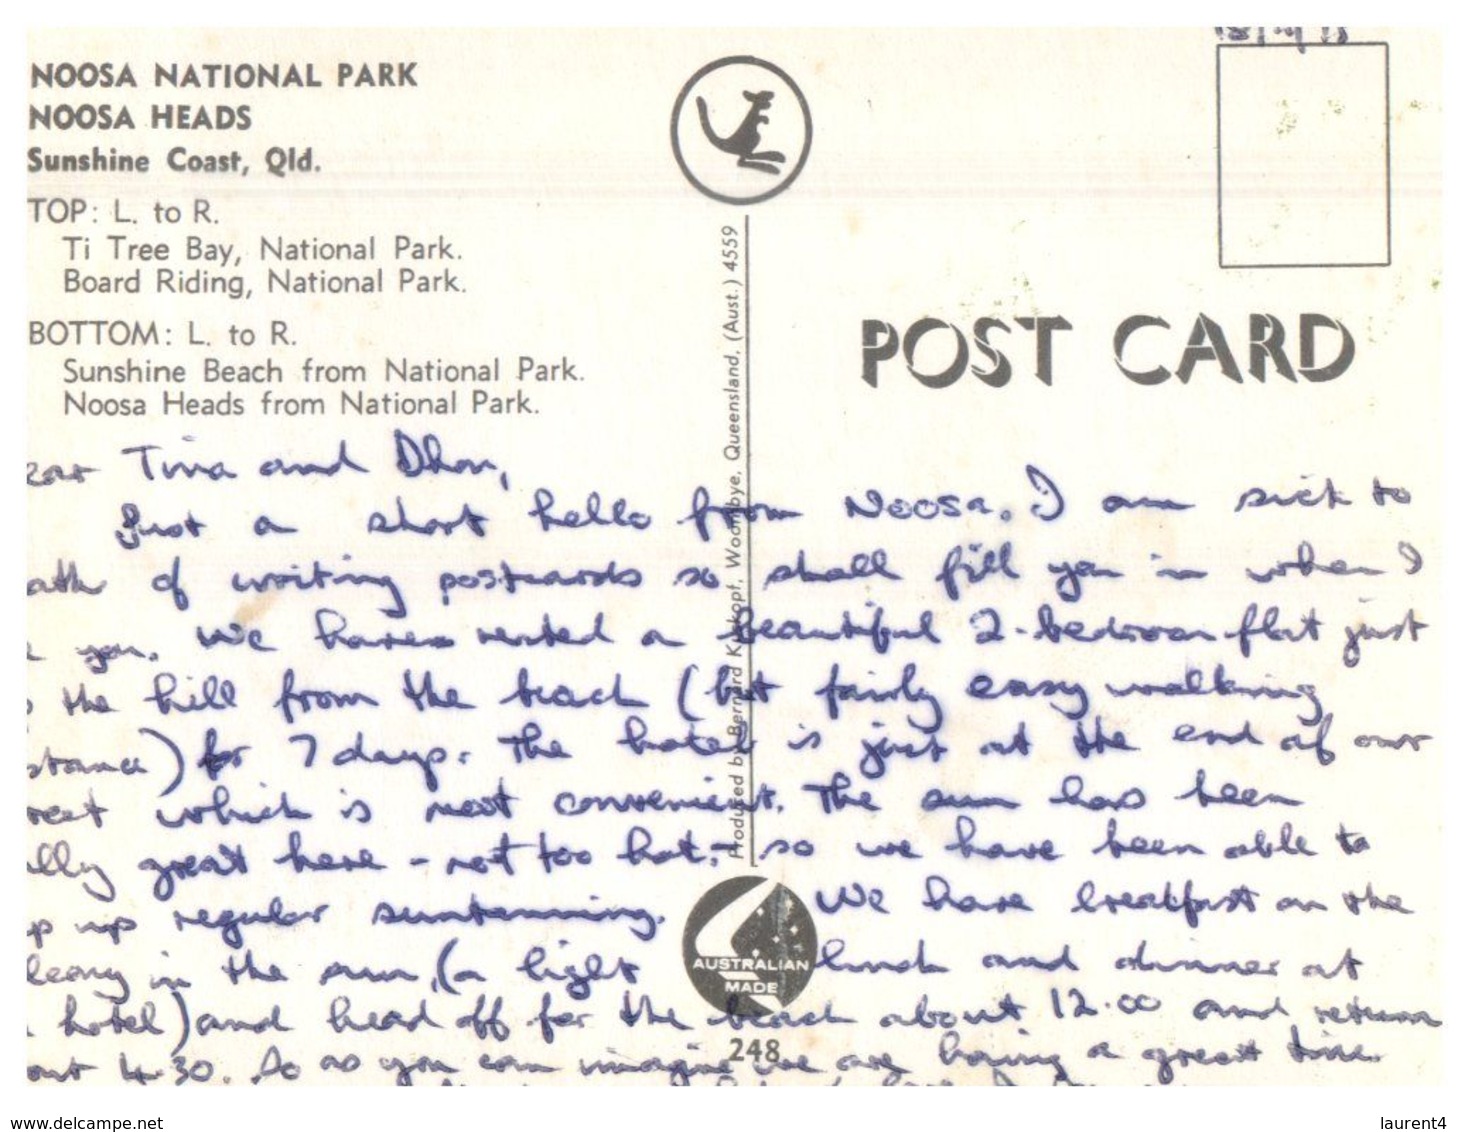 NOOSA NATIONAL PARK
NOOSA HEADS
Sunshine Coast, Qld.
TOP: L. to R.
Ti Tree Bay, National Park.
Board Riding, National Park.
BOTTOM: L. to R.
Sunshine Beach from National Park.
Noosa Heads from National Park.
Produced by Bernard Kirkopf, Woombye, Queensland, (Aust.) 4559
POST CARD
ear Tina and Dhon,
Just a short hello from Noosa. I am sick to
eath of writing postcards so shall fill you in when I
you. We have rented a beautiful 2-bedroom flat just
the hill from the beach (but fairly easy walking
stance) for 7 days. The hotel is just at the end of our
reet which is most convenient. The sun has been
ally great here - not too hot - so we have been able to
p up regular suntanning. We have breakfast on the
lcony in the sun, (a light lunch and dinner at
hotel) and head off for the beach about 12.00 and return
out 4.30. So as you can imagine we are having a great time
AUSTRALIAN
MADE
248
www.delcampe.net
laurent4